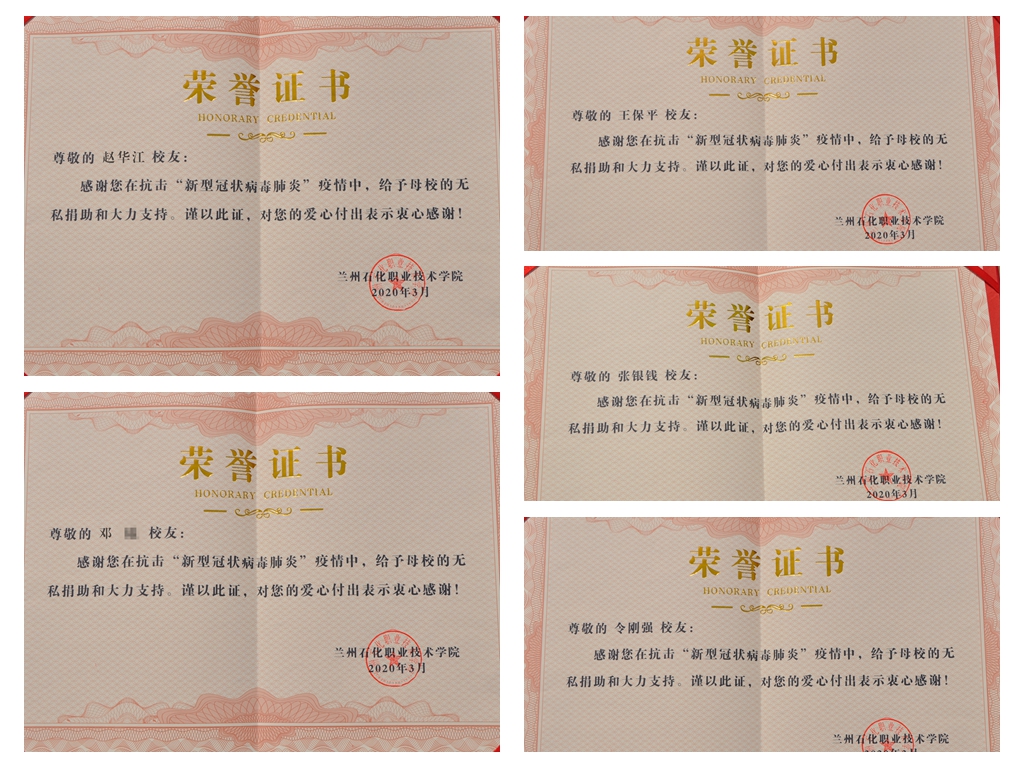 荣誉证书
HONORARY CREDENTIAL
尊敬的 赵华江 校友：
感谢您在抗击“新型冠状病毒肺炎”疫情中，给予母校的无
私捐助和大力支持。谨以此证，对您的爱心付出表示衷心感谢！
兰州石化职业技术学院
2020年3月
荣誉证书
HONORARY CREDENTIAL
尊敬的 邓 校友：
感谢您在抗击“新型冠状病毒肺炎”疫情中，给予母校的无
私捐助和大力支持。谨以此证，对您的爱心付出表示衷心感谢！
兰州石化职业技术学院
2020年3月
荣誉证书
HONORARY CREDENTIAL
尊敬的 王保平 校友：
感谢您在抗击“新型冠状病毒肺炎”疫情中，给予母校的无
私捐助和大力支持。谨以此证，对您的爱心付出表示衷心感谢！
兰州石化职业技术学院
2020年3月
荣誉证书
HONORARY CREDENTIAL
尊敬的 张银钱 校友：
感谢您在抗击“新型冠状病毒肺炎”疫情中，给予母校的无
私捐助和大力支持。谨以此证，对您的爱心付出表示衷心感谢！
兰州石化职业技术学院
2020年3月
荣誉证书
HONORARY CREDENTIAL
尊敬的 令刚强 校友：
感谢您在抗击“新型冠状病毒肺炎”疫情中，给予母校的无
私捐助和大力支持。谨以此证，对您的爱心付出表示衷心感谢！
兰州石化职业技术学院